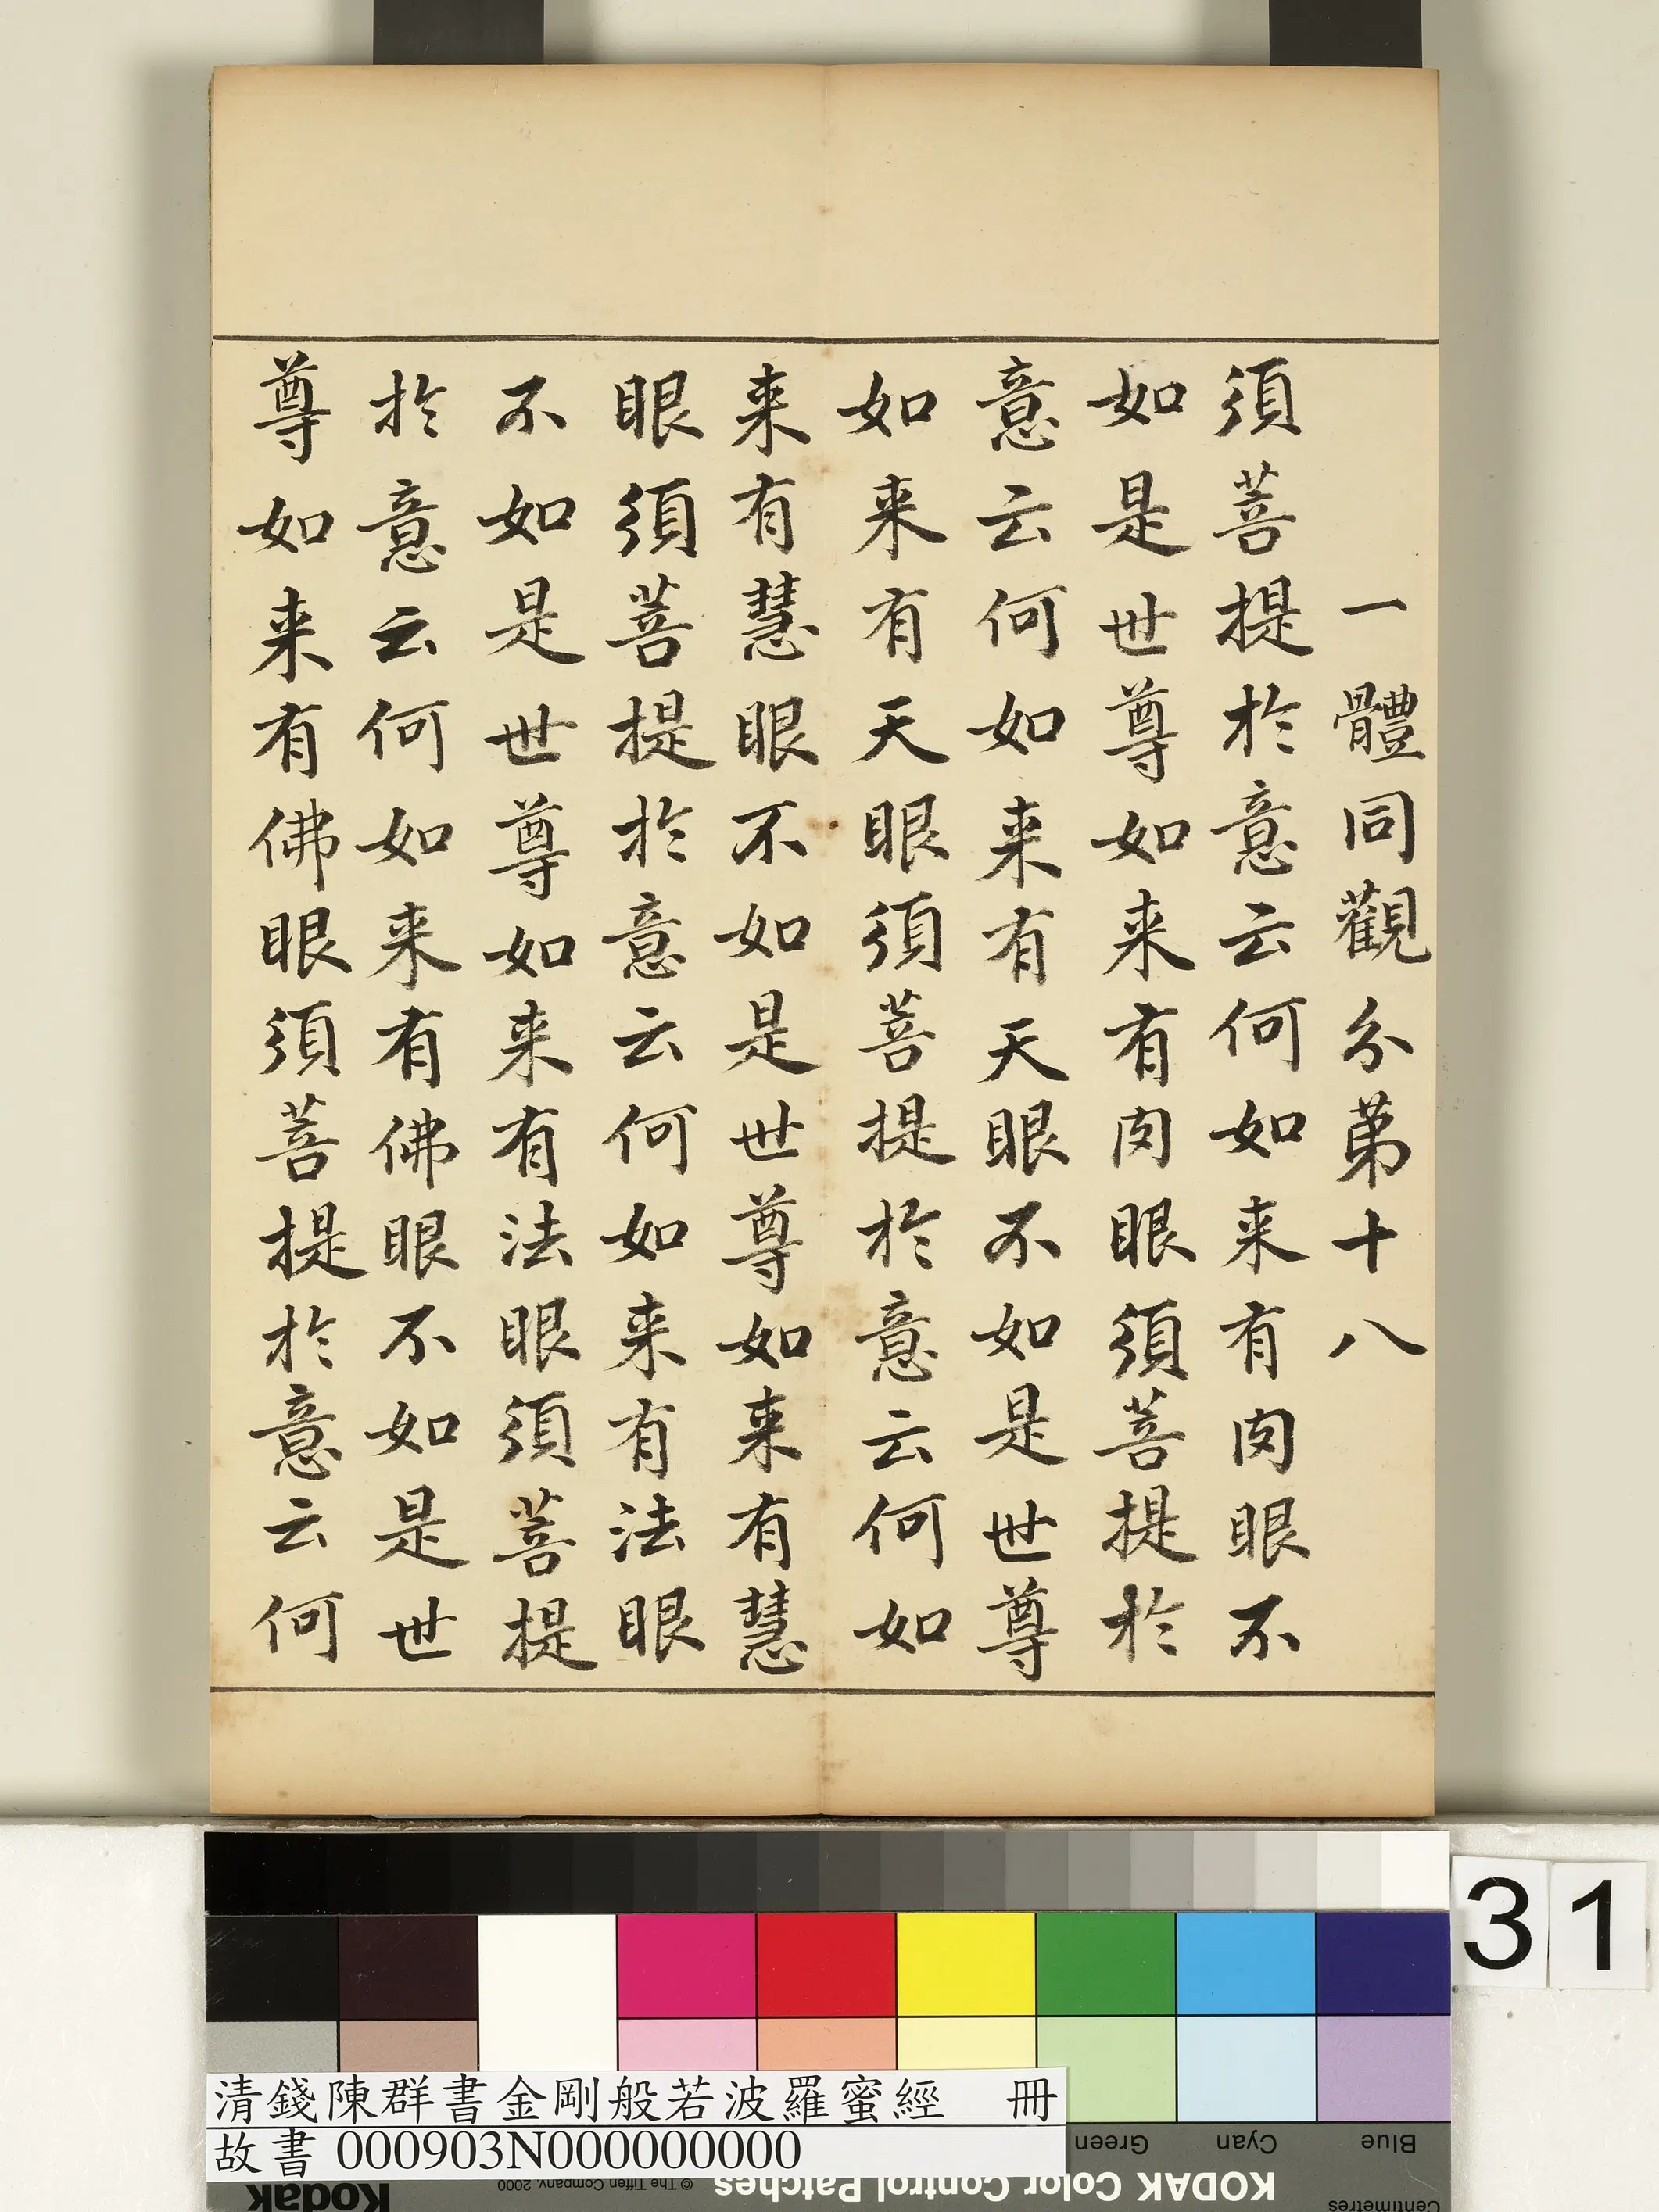 一體同觀分第十八
須菩提於意云何如来有肉眼不
如是世尊如来有肉眼須菩提於
意云何如来有天眼不如是世尊
如来有天眼須菩提於意云何如
来有慧眼不如是世尊如来有慧
眼須菩提於意云何如来有法眼
不如是世尊如来有法眼須菩提
於意云何如来有佛眼不如是世
尊如来有佛眼須菩提於意云何
31
清錢陳群書金剛般若波羅蜜經 冊
故書 000903N000000000
Blue
Cyan
Green
KODAK Color Control Patches
© The Tiffen Company, 2000
Kodak
Centimetres